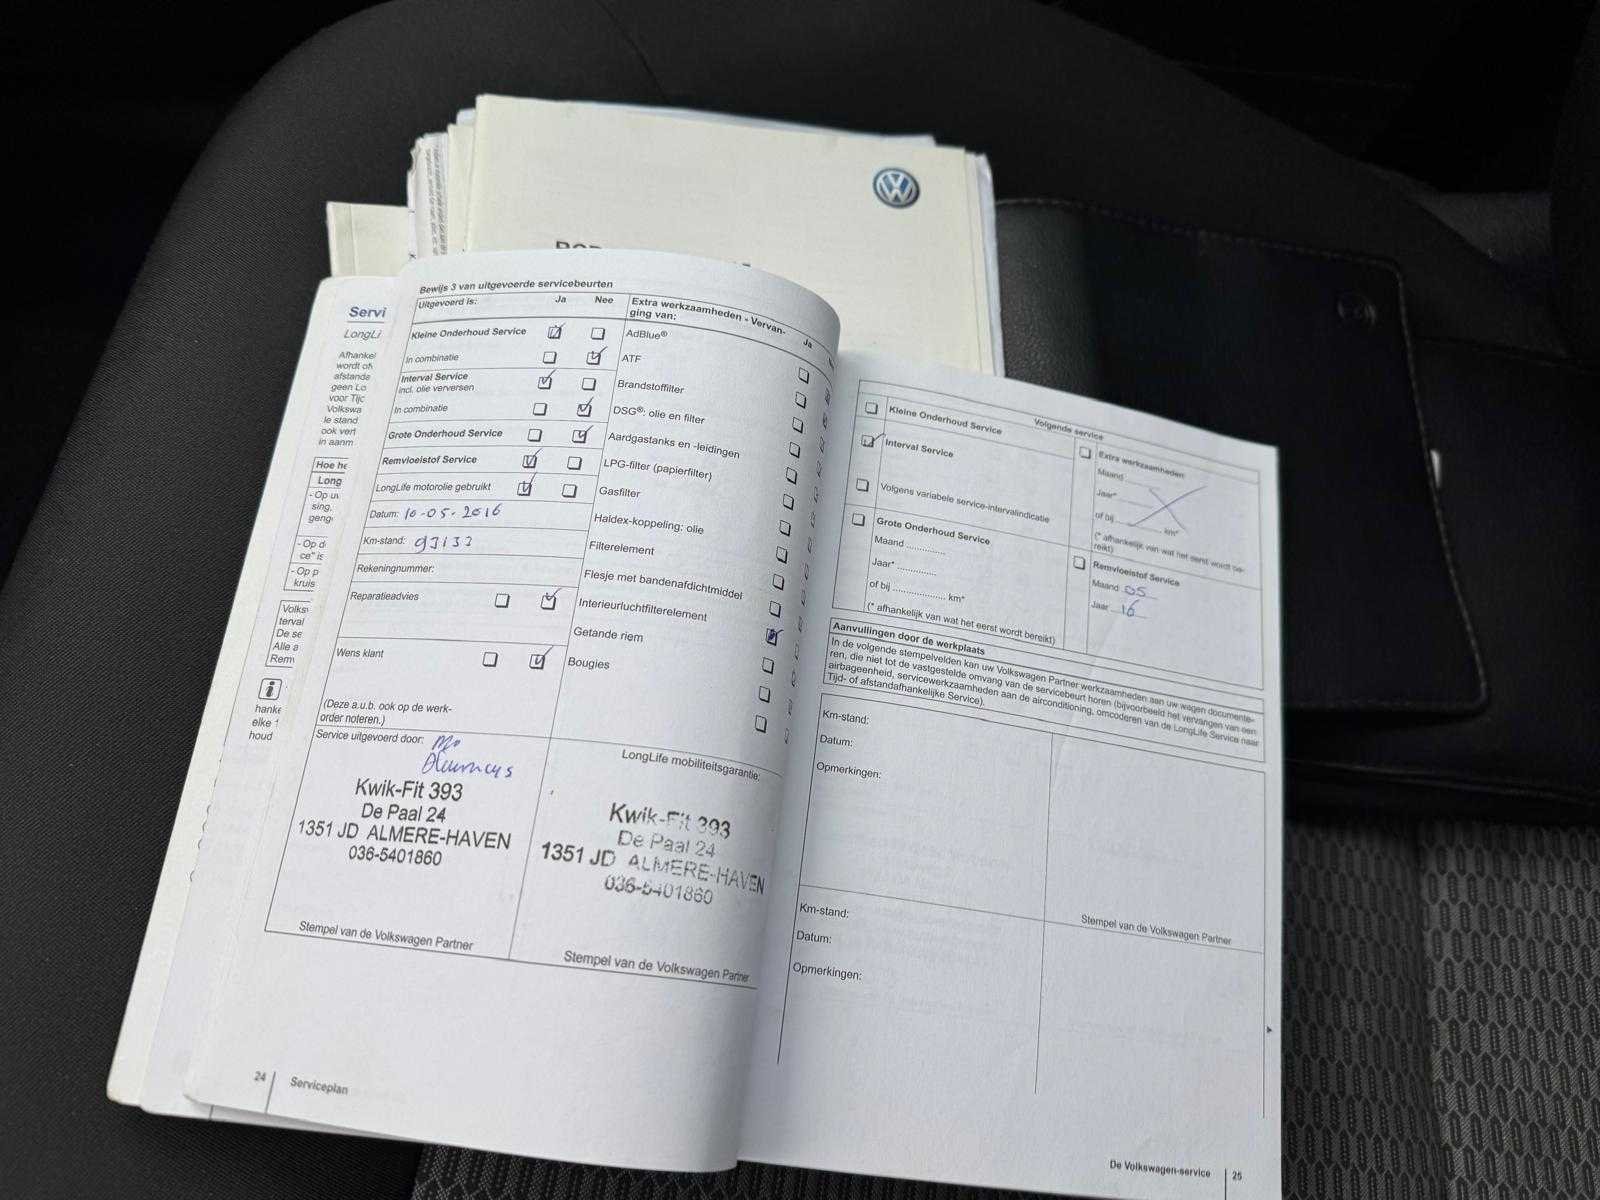 Servi
LongLi
Afhankel
wordt of
afstands
geen Lo
voor Tijc
Volkswa
le stand
ook vert
in aanm
Hoe he
Long
- Op uw
sing,
geng
- Op d
ce" is
- Op p
kruis
Volksv
terval
De se
Alle a
Rem
hanke
elke 1
houd
Bewijs 3 van uitgevoerde servicebeurten
Uitgevoerd is: Ja Nee
Kleine Onderhoud Service
In combinatie
Interval Service
incl. olie verversen
In combinatie
Grote Onderhoud Service
Remvloeistof Service
LongLife motorolie gebruikt
Datum: 10-05-2016
Km-stand: 93133
Rekeningnummer:
Reparatieadvies
Wens klant
(Deze a.u.b. ook op de werk-
order noteren.)
Extra werkzaamheden - Vervan-
ging van: Ja
AdBlue®
ATF
Brandstoffilter
DSG®: olie en filter
Aardgastanks en -leidingen
LPG-filter (papierfilter)
Gasfilter
Haldex-koppeling: olie
Filterelement
Flesje met bandenafdichtmiddel
Interieurluchtfilterelement
Getande riem
Bougies
Service uitgevoerd door:
Kwik-Fit 393
De Paal 24
1351 JD ALMERE-HAVEN
036-5401860
Stempel van de Volkswagen Partner
LongLife mobiliteitsgarantie:
Kwik-Fit 393
De Paal 24
1351 JD ALMERE-HAVEN
036-5401860
Stempel van de Volkswagen Partner
24 Serviceplan
Volgende service
Kleine Onderhoud Service
Interval Service
Volgens variabele service-intervalindicatie
Grote Onderhoud Service
Maand .............
Jaar* .............
of bij .................. km*
(* afhankelijk van wat het eerst wordt bereikt)
Extra werkzaamheden:
Maand
Jaar*
of bij km*
(* afhankelijk van wat het eerst wordt be-
reikt)
Remvloeistof Service
Maand 05
Jaar 16
Aanvullingen door de werkplaats
In de volgende stempelvelden kan uw Volkswagen Partner werkzaamheden aan uw wagen documente-
ren, die niet tot de vastgestelde omvang van de servicebeurt horen (bijvoorbeeld het vervangen van een
airbageenheid, servicewerkzaamheden aan de airconditioning, omcoderen van de LongLife Service naar
Tijd- of afstandafhankelijke Service).
Km-stand:
Datum:
Opmerkingen:
Stempel van de Volkswagen Partner
Km-stand:
Datum:
Opmerkingen:
De Volkswagen-service 25